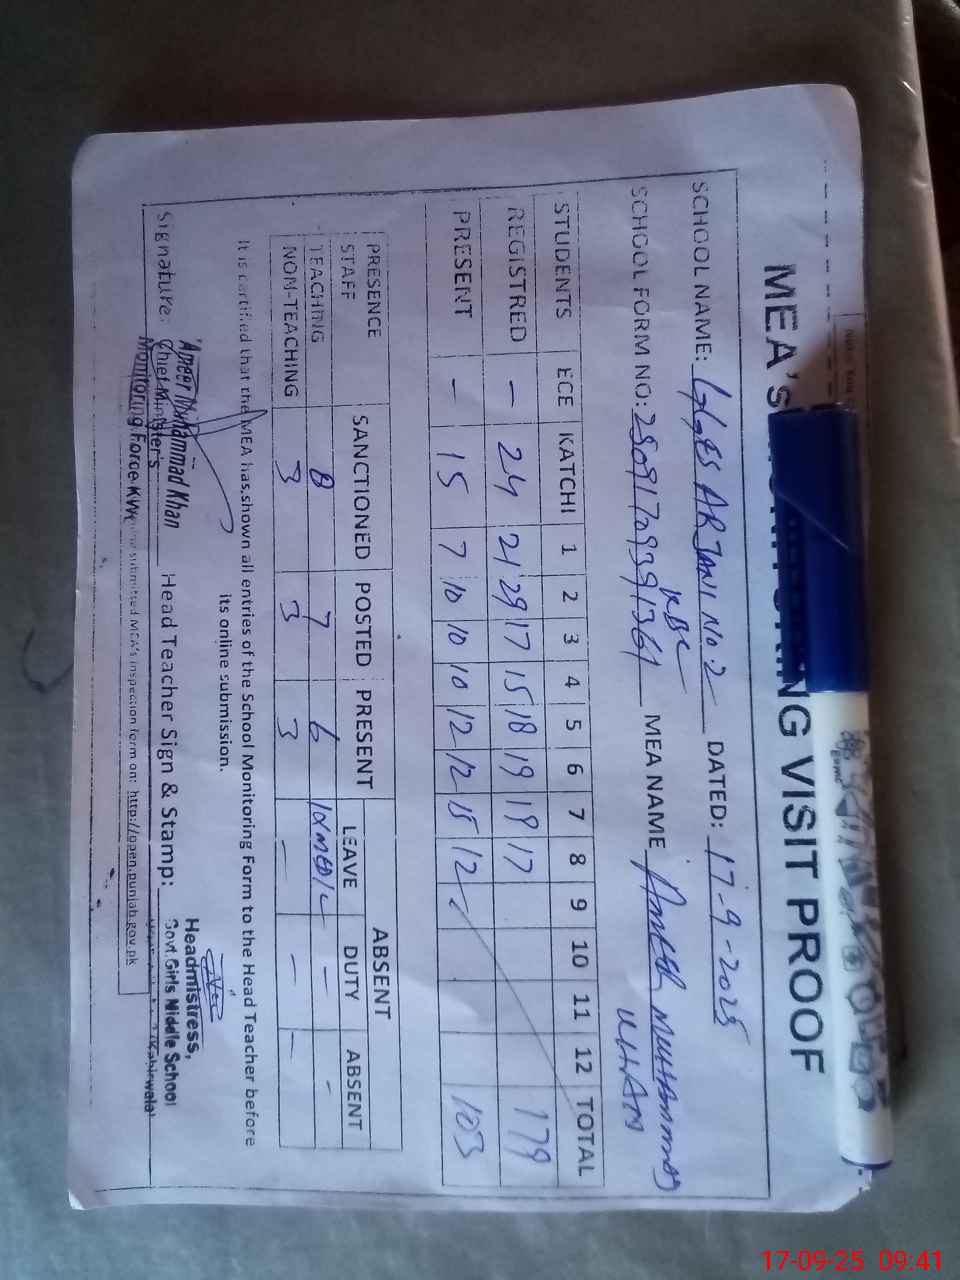 MEA's MONITORING VISIT PROOF
SCHOOL NAME: GGES ARJANI No 2 DATED: 17-9-2025
KBC
SCHOOL FORM NO: MEA NAME AMEER MUHAMMAD
KHAN
STUDENTS ECE KATCHI 1 2 3 4 5 6 7 8 9 10 11 12 TOTAL
REGISTRED - 24 21 29 17 15 18 19 19 17 179
PRESENT - 15 7 10 10 10 12 12 15 12 103
PRESENCE STAFF SANCTIONED POSTED PRESENT ABSENT
LEAVE DUTY ABSENT
TEACHING 8 7 6 - -
NOM-TEACHING 3 3 3 - - -
It is certified that the MEA has shown all entries of the School Monitoring Form to the Head Teacher before
its online submission.
Signature: Ameer Muhammad Khan Head Teacher Sign & Stamp: Headmistress,
Chief Minister's Govt.Girls Middle School
Monitoring Force submitted MEA's inspection form on: http://open.punjab.gov.pk
17-09-25 09:41